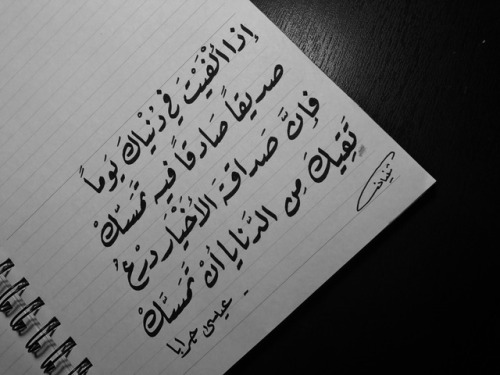 إذا ألْفَيْتَ في دُنْيَاكَ يَوماً
صديقاً صَادقاً فيه تمَسّكْ
فإنَّ صَداقةَ الأَخْيَار دِرْعٌ
تَقِيكَ مِن الدَّنايا أنْ تَمَسَّكْ
- عيسى جرابا